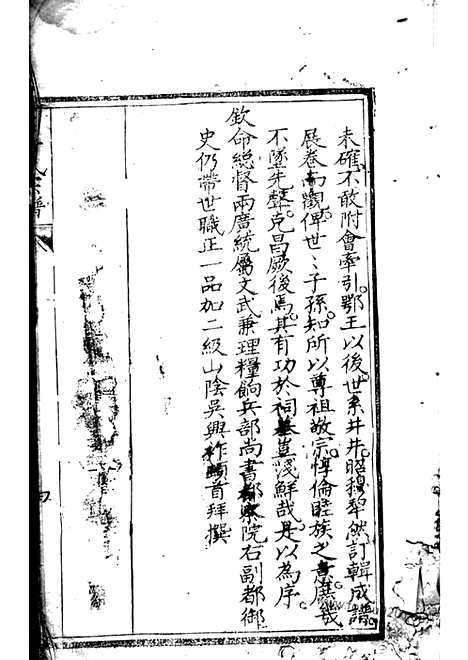 未確不敢附會牽引鄂王以後世系井井昭穆犂然訂輯成譜
展卷而觀俾世〻子孫知所以尊祖敬宗惇倫睦族之意庶幾
不墜先聲克昌厥後焉其有功於祠墓豈淺鮮哉是以為序
欽命總督兩廣統屬文武兼理糧餉兵部尚書都察院右副都御
史仍帶世職正一品加二級山陰吳興祚頓首拜撰
譜